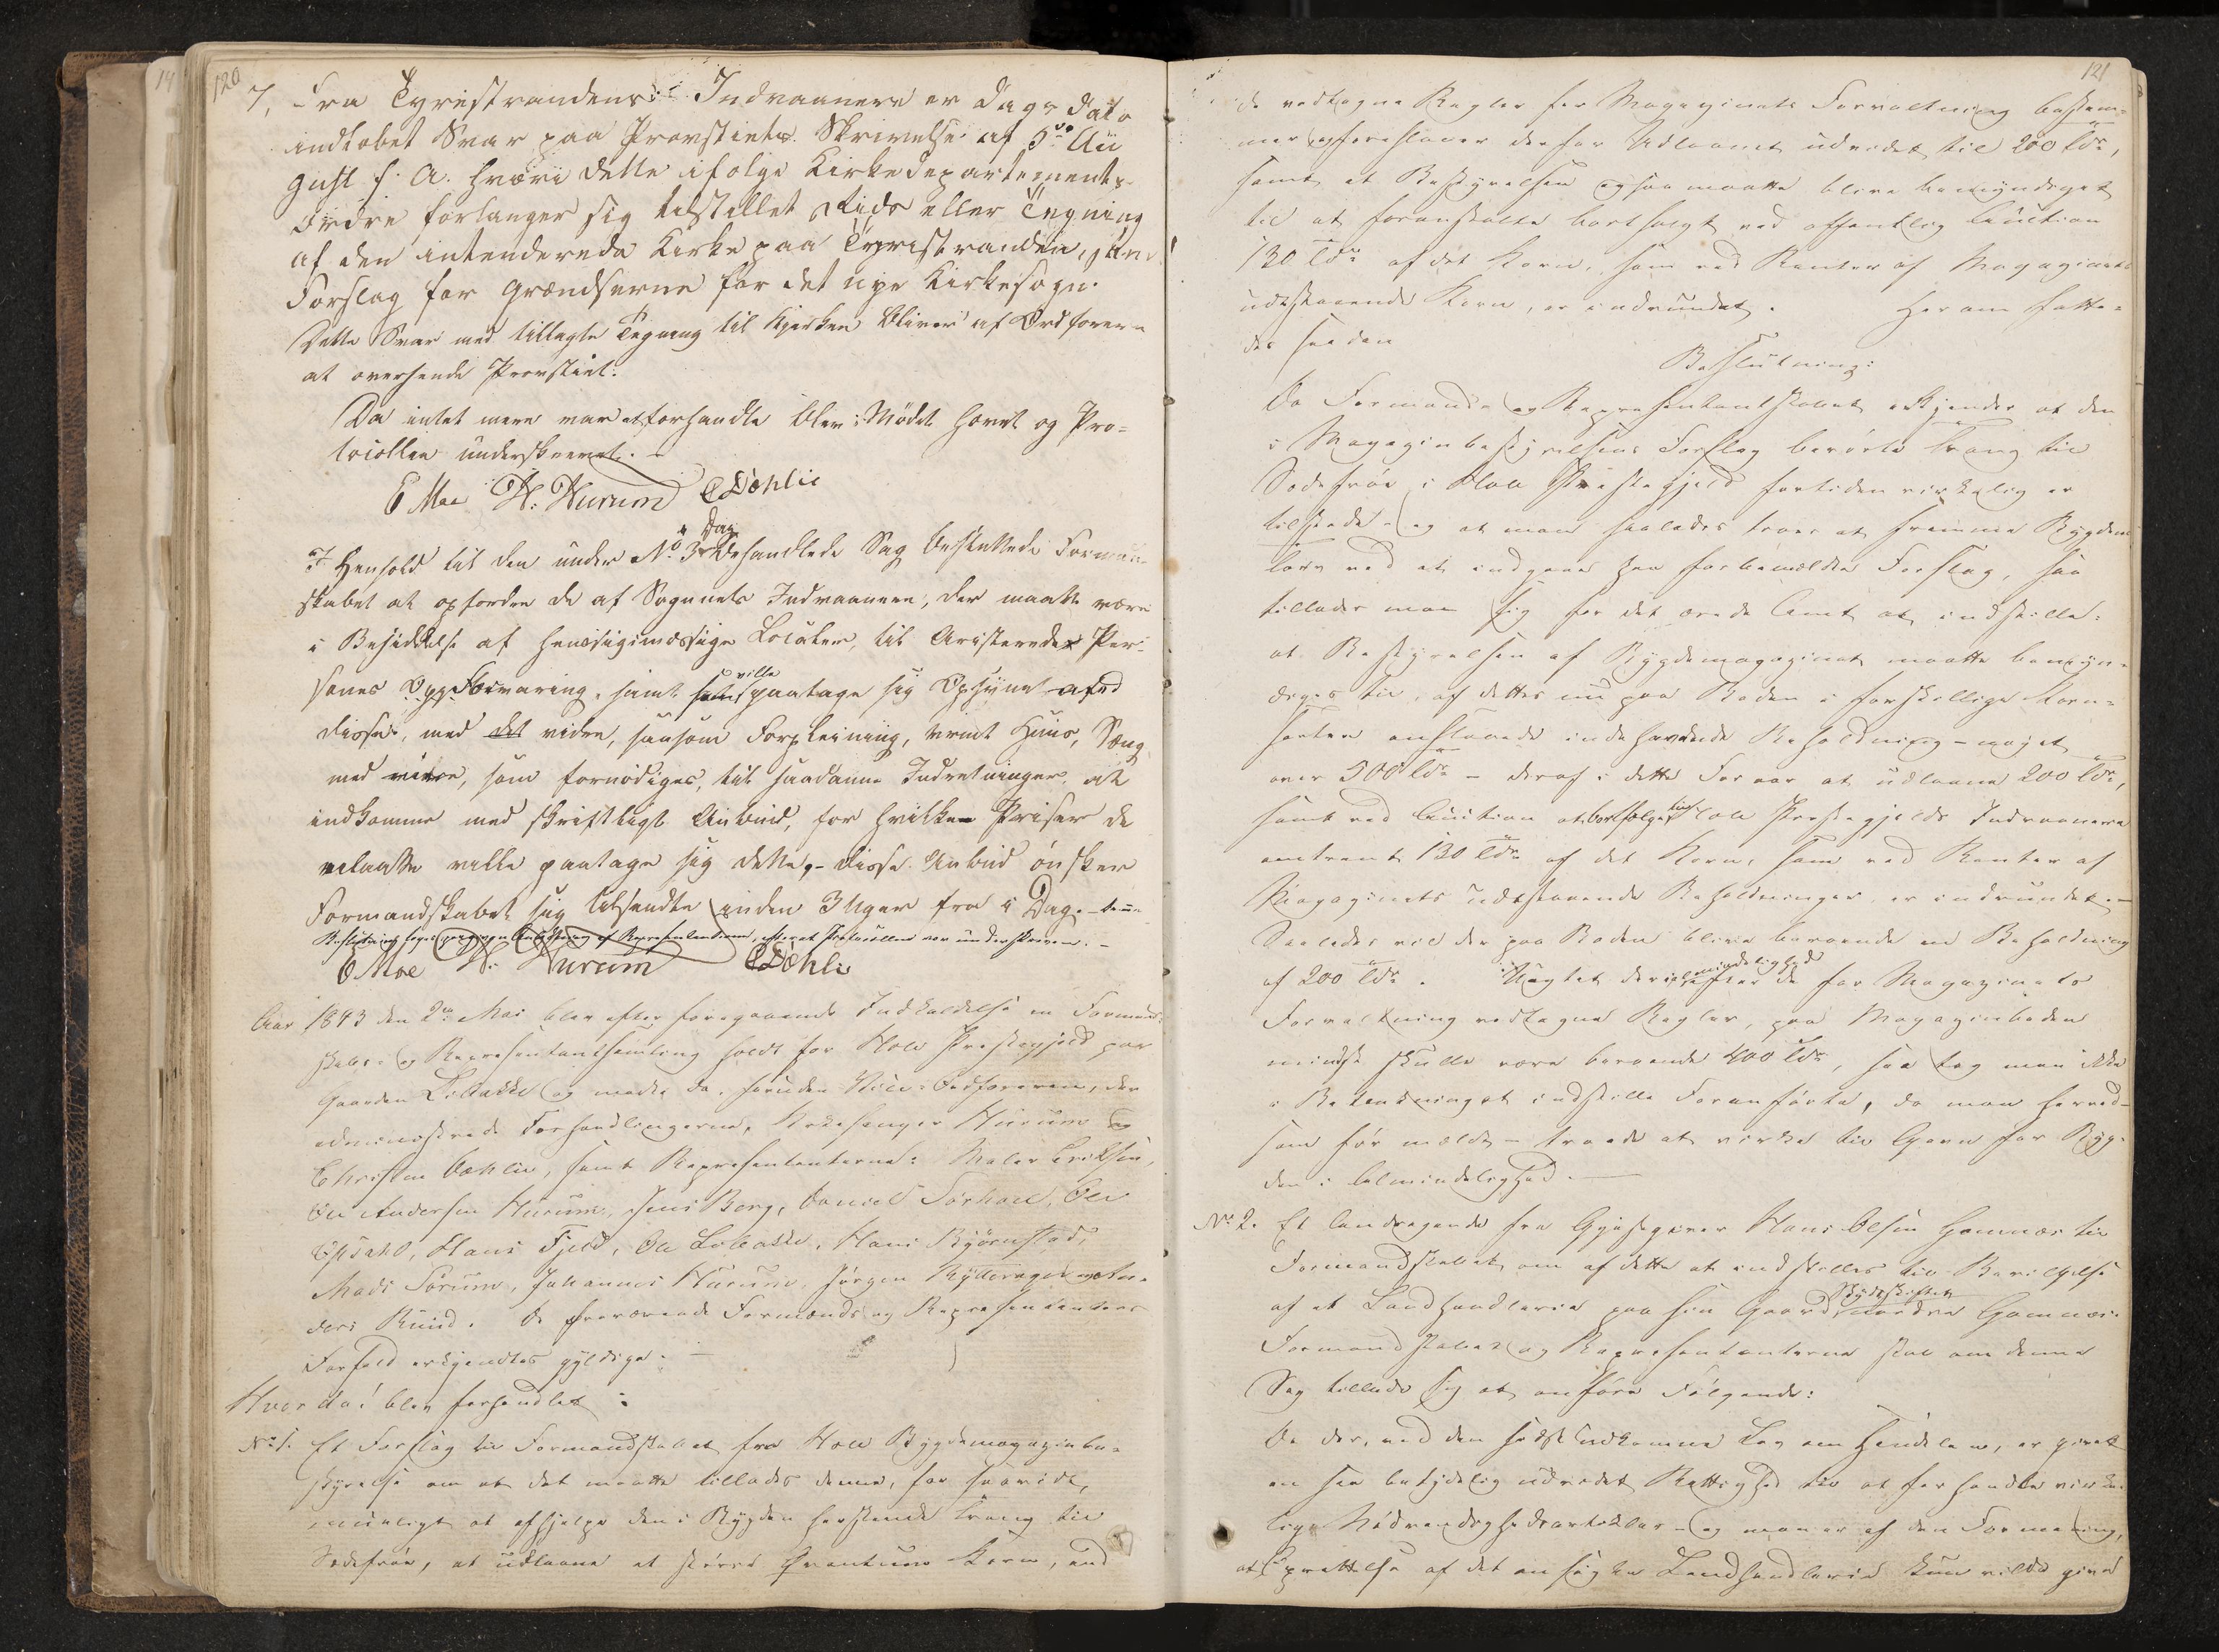 120
7, Fra Tyristrandens Indvaanere er Dags Dato
indløbet Svar paa Provstiets Skrivelse af 5te Au
gust f. A. hvori dette ifølge Kirkedepartements
Ordre forlanger sig tilstillet Rids eller Tegning
af den intenderede Kirke paa Tyristranden, samt
Forslag for Grændserne for det nye Kirkesogn.
Dette Svar med tillagte Tegning til Kjerken bliver af Ordføreren
at oversende Provstiet.
Da intet mere var at forhandle blev Mødet hævet og Pro=
tocollen underskrevet.
E Moe H. Hurum C Dæhlie
I Henhold til den under No 3 i Dag behandlede Sag besluttede Formand
skabet at opfordre de af Sognets Indvaanere, der maatte være
i Besiddelse af hensigtsmæssige Localer, til Arresterede Per=
soners Opp Forvaring, samt som ville paatage sig Opsynet med
disse, med det videre, saasom Forpleining, varmt Huus, Seng
med videre, som fornødiges, til saadanne Indretninger, at
indkomme med skriftligt Anbud, for hvilken Priser de
ville paatage sig dette, - disse Anbud ønsker
Formandskabet sig tilsendte inden 3 Uger fra i Dag. - denne
Beslutning foregaaende af Repræsentanterne, efterat Protocollen var underskreven. -
E Moe H. Hurum C Dæhli
Aar 1843 den 2den Mai blev efter foregaaende Indkaldelse en Formand=
skabs- og Repræsentantsamling holdt for Hole Præstegjeld paa
Gaarden Libakke og mødte da, foruden Vice-Ordføreren, der
administrerede Forhandlingerne, Kirkesanger Hurum og
Christen Dæhlie, samt Repræsentanterne: Maler Eriksen,
Ole Andersen Hurum, Jens Berg, Daniel Sørhoel, Ole
Opsahl, Hans Fjeld, Ole Libakke, Hans Bjørnstad,
Mads Sørum, Johannes Hurum, Jørgen Rytterager og An=
ders Rund. De fraværende Formænds og Repræsentanters
Forfald erkjendtes gyldige. -
Hver da blev forhandlet:
No 1. Et Forslag til Formandskabet fra Hole Bygdemagazinbe=
styrelse om at det maatte tillades denne, for saavidt
mueligt at afhjelpe den i Bygden herskende Trang til
Sædefrøe, at udlaane et større Qvantum Korn, end
121
de vedtagne Regler for Magazinets Forvaltning bestem=
mer og foreslaaer derfor Udlaanet udvidet til 200 Tdr,
samt at Bestyrelsen ogsaa maatte blive bemyndiget
til at foranstalte bortsolgt ved offentlig Auction
130 Tdr af det Korn, som ved Renter af Magazinets
udestaaende Korn, er indvundet. Herom fatte=
des saadan
Beslutning:
Da Formands- og Repræsentantskabet erkjender at den
i Magazinbestyrelsens Forslag berørte Trang til
Sædefrøe i Hole Præstegjeld fortiden virkelig er
tilstede - og at man saaledes troer at fremme Bygdens
Tarv ved at indgaae paa forbemældte Forslag, saa
tillader man sig for det ærede Amt at indstille:
at Bestyrelsen af Bygdemagazinet maatte bemyn=
diges til, af dettes nu paa Boden i forskjellige Korn=
sorter anslaaede indehavende Beholdning - noget
over 500 Tdr - deraf i dette Foraar at udlaane 200 Tdr,
samt ved Auction at bortsælge til Hole Præstegjelds Indvaanere
omtrent 130 Tdr af det Korn, som ved Renter af
Magazinets udestaaende Beholdninger, er indvundet. -
Saaledes vil der paa Boden blive beroende en Beholdning
af 200 Tdr. Uagtet der i Almindelighed efter de for Magazinets
Forvaltning vedtagne Regler, paa Magazinboden
mindst skulle være beroende 400 Tdr, saa tog man ikke
i Betænkning at indstille Foranførte, da man herved -
som før mældt - troede at virke til Gavn for Byg=
den i Almindelighed. -
No 2. Et Andragende fra Gjæstgiver Hans Olsen Gomnæs til
Formandskabet om af dette at indstilles til Bevilgelse
af et Landhandlerie paa sin Gaard Skydsskiftet nordre Gomnæs.
Formandskabet og Repræsentanterne skal om denne
Sag tillade sig at anføre Følgende:
Da der, ved den sidst udkomne Lov om Handelen, er givet
en saa betydelig udvidet Rettighed til at forhandle virke=
lige Nødvendighedsartikler - og man er af den Formening,
at Oprettelse af det ansøgte Landhandlerie kun vilde give